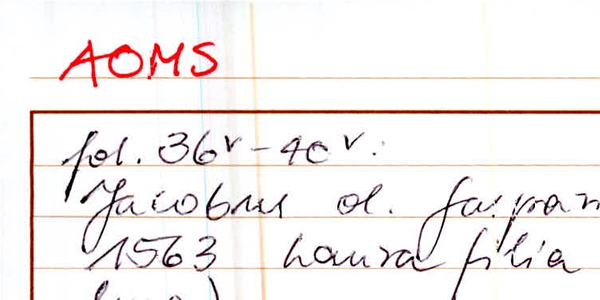 AOMS
fol. 36v - 40v:
Jacobus ol. Gaspar
1563 Laura filia